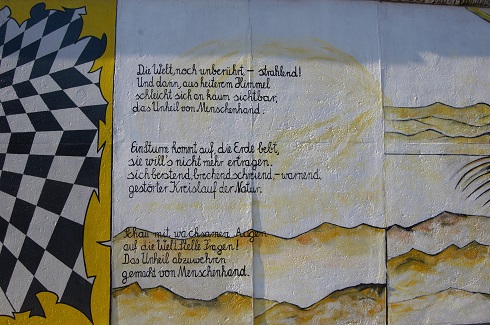 Die Welt, noch unberührt – strahlend!
Und dann, aus heiterem Himmel
schleicht sich an kaum sichtbar,
das Unheil von Menschenhand.
Ein Sturm kommt auf, die Erde bebt,
sie will's nicht mehr ertragen.
sich berstend, brechend, schreiend, – warnend,
gestörter Kreislauf der Natur.
Schau mit wachsamen Augen
auf die Welt. Stelle Fragen!
Das Unheil abzuwehren
gemacht von Menschenhand.